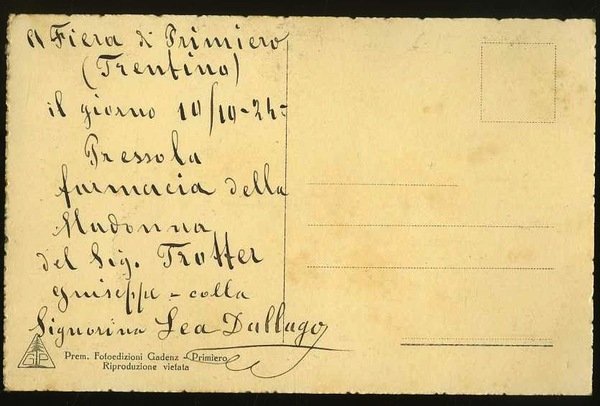 A Fiera di Primiero
(Trentino)
il giorno 10/10-24-
Pressola
farmacia della
Madonna
del Sig. Trotter
Guiseppe - colla
Signorina Lea Dallago
GP
Prem. Fotoedizioni Gadenz - Primiero
Riproduzione vietata